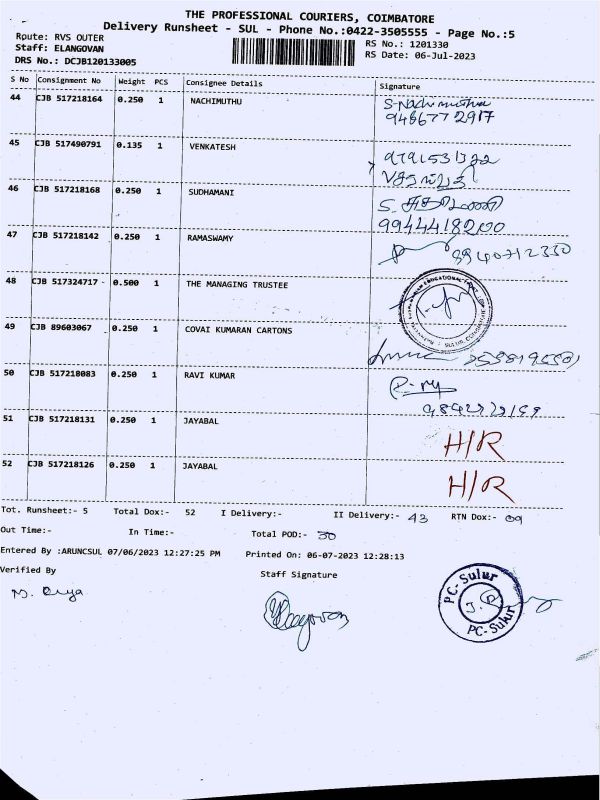 THE PROFESSIONAL COURIERS, COIMBATORE
Delivery Runsheet - SUL - Phone No.:0422-3505555 - Page No.:5
Route: RVS OUTER
RS No.: 1201330
Staff: ELANGOVAN
RS Date: 06-Jul-2023
DRS No.: DCJB120133005
S No Consignment No Weight PCS Consignee Details Signature
44 CJB 517218164 0.250 1 NACHIMUTHU S-Nachimuthu
9486772917
45 CJB 517490791 0.135 1 VENKATESH
46 CJB 517218168 0.250 1 SUDHAMANI
47 CJB 517218142 0.250 1 RAMASWAMY
48 CJB 517324717 0.500 1 THE MANAGING TRUSTEE
49 CJB 89603067 0.250 1 COVAI KUMARAN CARTONS
50 CJB 517218083 0.250 1 RAVI KUMAR
51 CJB 517218131 0.250 1 JAYABAL H/R
52 CJB 517218126 0.250 1 JAYABAL H/R
Tot. Runsheet:- 5 Total Dox:- 52 I Delivery:- II Delivery:- 43 RTN Dox:- 09
Out Time:- In Time:- Total POD:- 30
Entered By :ARUNCSUL 07/06/2023 12:27:25 PM Printed On: 06-07-2023 12:28:13
Verified By Staff Signature
PC-Sulur
PC-Sulur